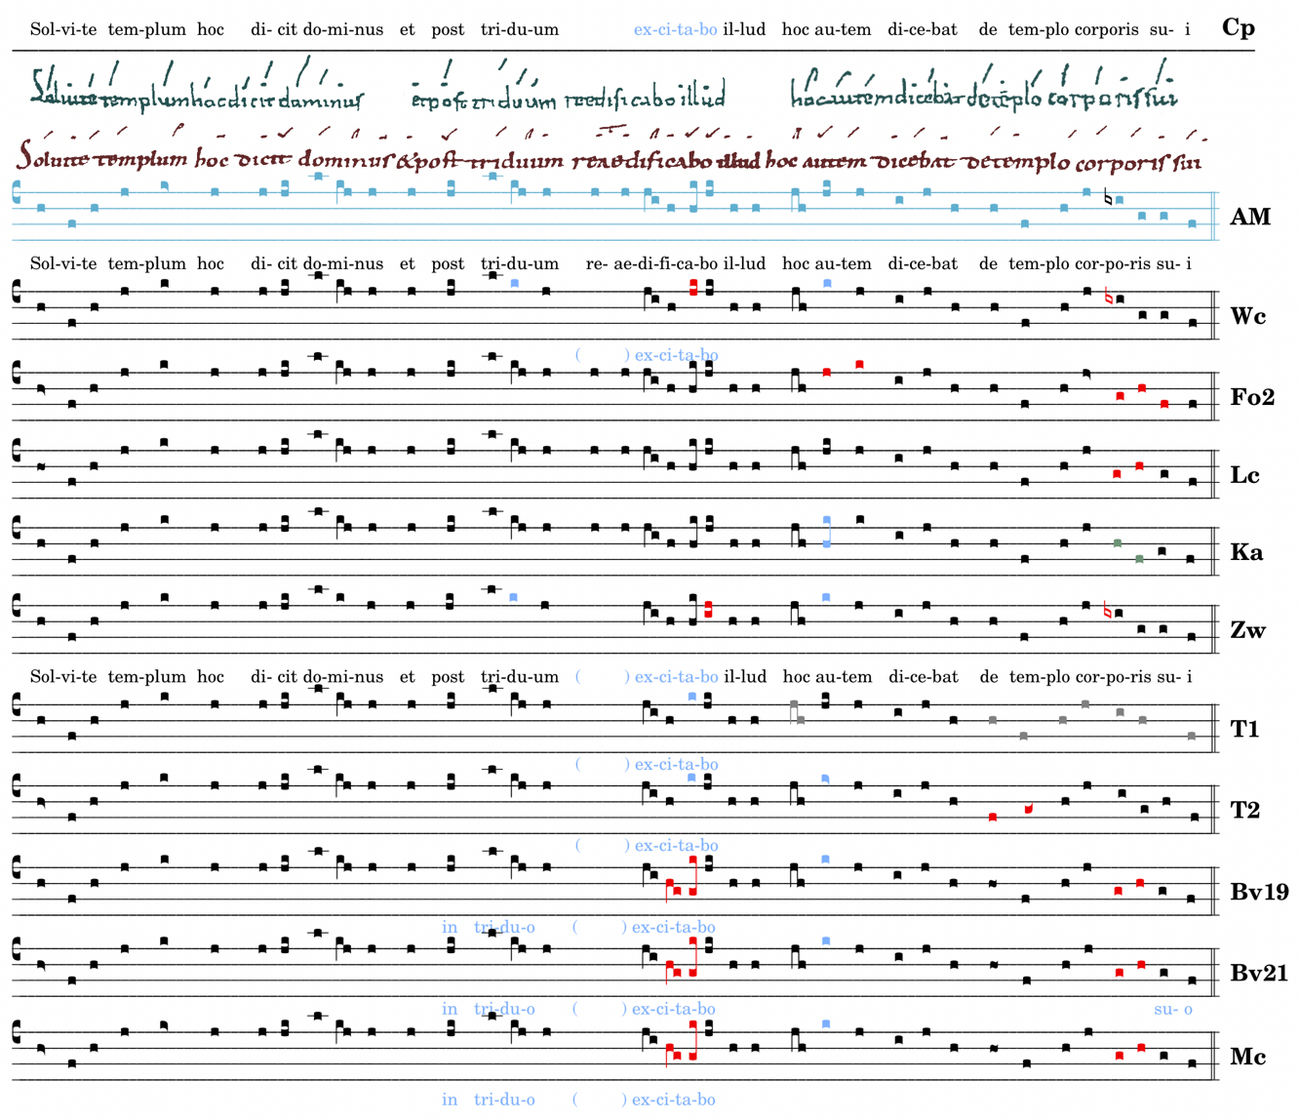 Sol-vi-te tem-plum hoc di- cit do-mi-nus et post tri-du-um ex-ci-ta-bo il-lud hoc au-tem di-ce-bat de tem-plo corporis su- i Cp
Soluite templum hoc dicit dominus et post triduum reedificabo illud hoc autem dicebat de templo corporis sui
Soluite templum hoc dicit dominus & post triduum reaedificabo illud hoc autem dicebat de templo corporis sui
AM
Sol-vi-te tem-plum hoc di- cit do-mi-nus et post tri-du-um re- ae-di-fi-ca-bo il-lud hoc au-tem di-ce-bat de tem-plo cor-po-ris su- i
Wc
( ) ex-ci-ta-bo
Fo2
Lc
Ka
Zw
Sol-vi-te tem-plum hoc di- cit do-mi-nus et post tri-du-um ( ) ex-ci-ta-bo il-lud hoc au-tem di-ce-bat de tem-plo cor-po-ris su- i
T1
( ) ex-ci-ta-bo
T2
( ) ex-ci-ta-bo
Bv19
in tri-du-o ( ) ex-ci-ta-bo
Bv21
in tri-du-o ( ) ex-ci-ta-bo su- o
Mc
in tri-du-o ( ) ex-ci-ta-bo